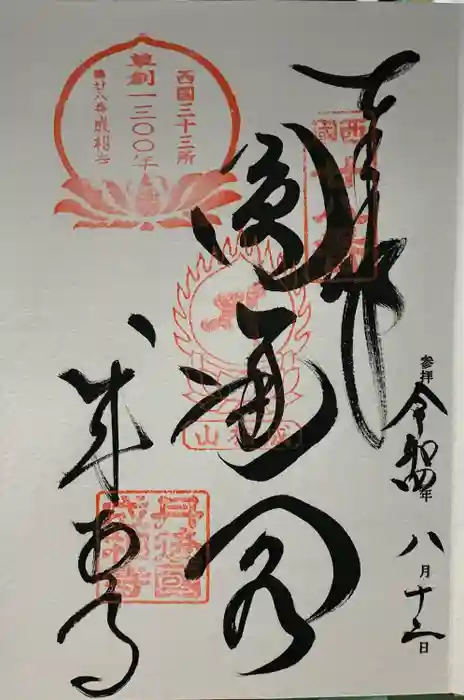 奉拝
西國
廿八番
参拝 令和四年 八月十三日
圓通閣
成相山
西國三十三所
草創一三〇〇年
第廿八番 成相寺
成相寺
丹後國
成相寺